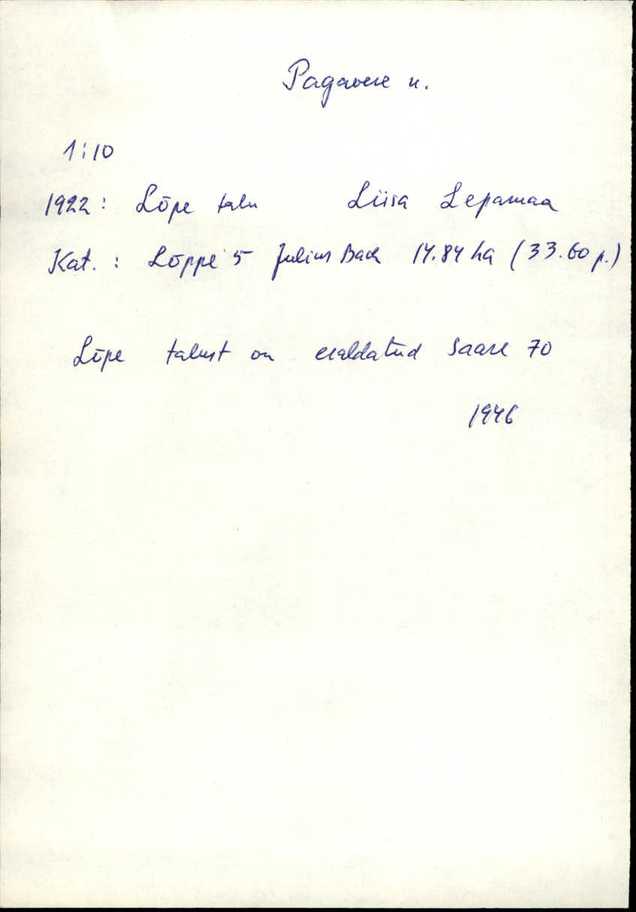 Pagavere k.
1:10
1922: Lõpe talu Liisa Lepamaa
Kat.: Lõppe 5 Julius Back 14.84 ha (33.60 p.)
Lõpe talust on eraldatud Saare 70
1946